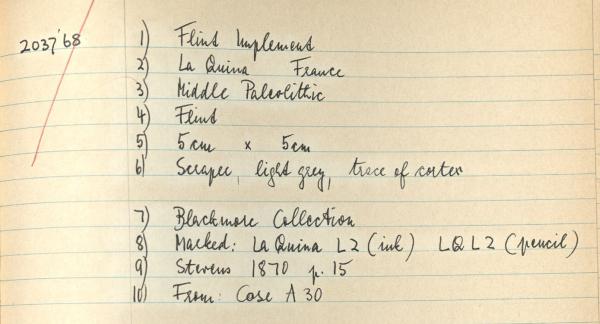 2037'68 1) Flint Implement
2) La Quina France
3) Middle Paleolithic
4) Flint
5) 5cm x 5cm
6) Scraper, light grey, trace of cortex
7) Blackmore Collection
8) Marked: La Quina L2 (ink) LQL2 (pencil)
9) Stevens 1870 p. 15
10) From: Case A 30